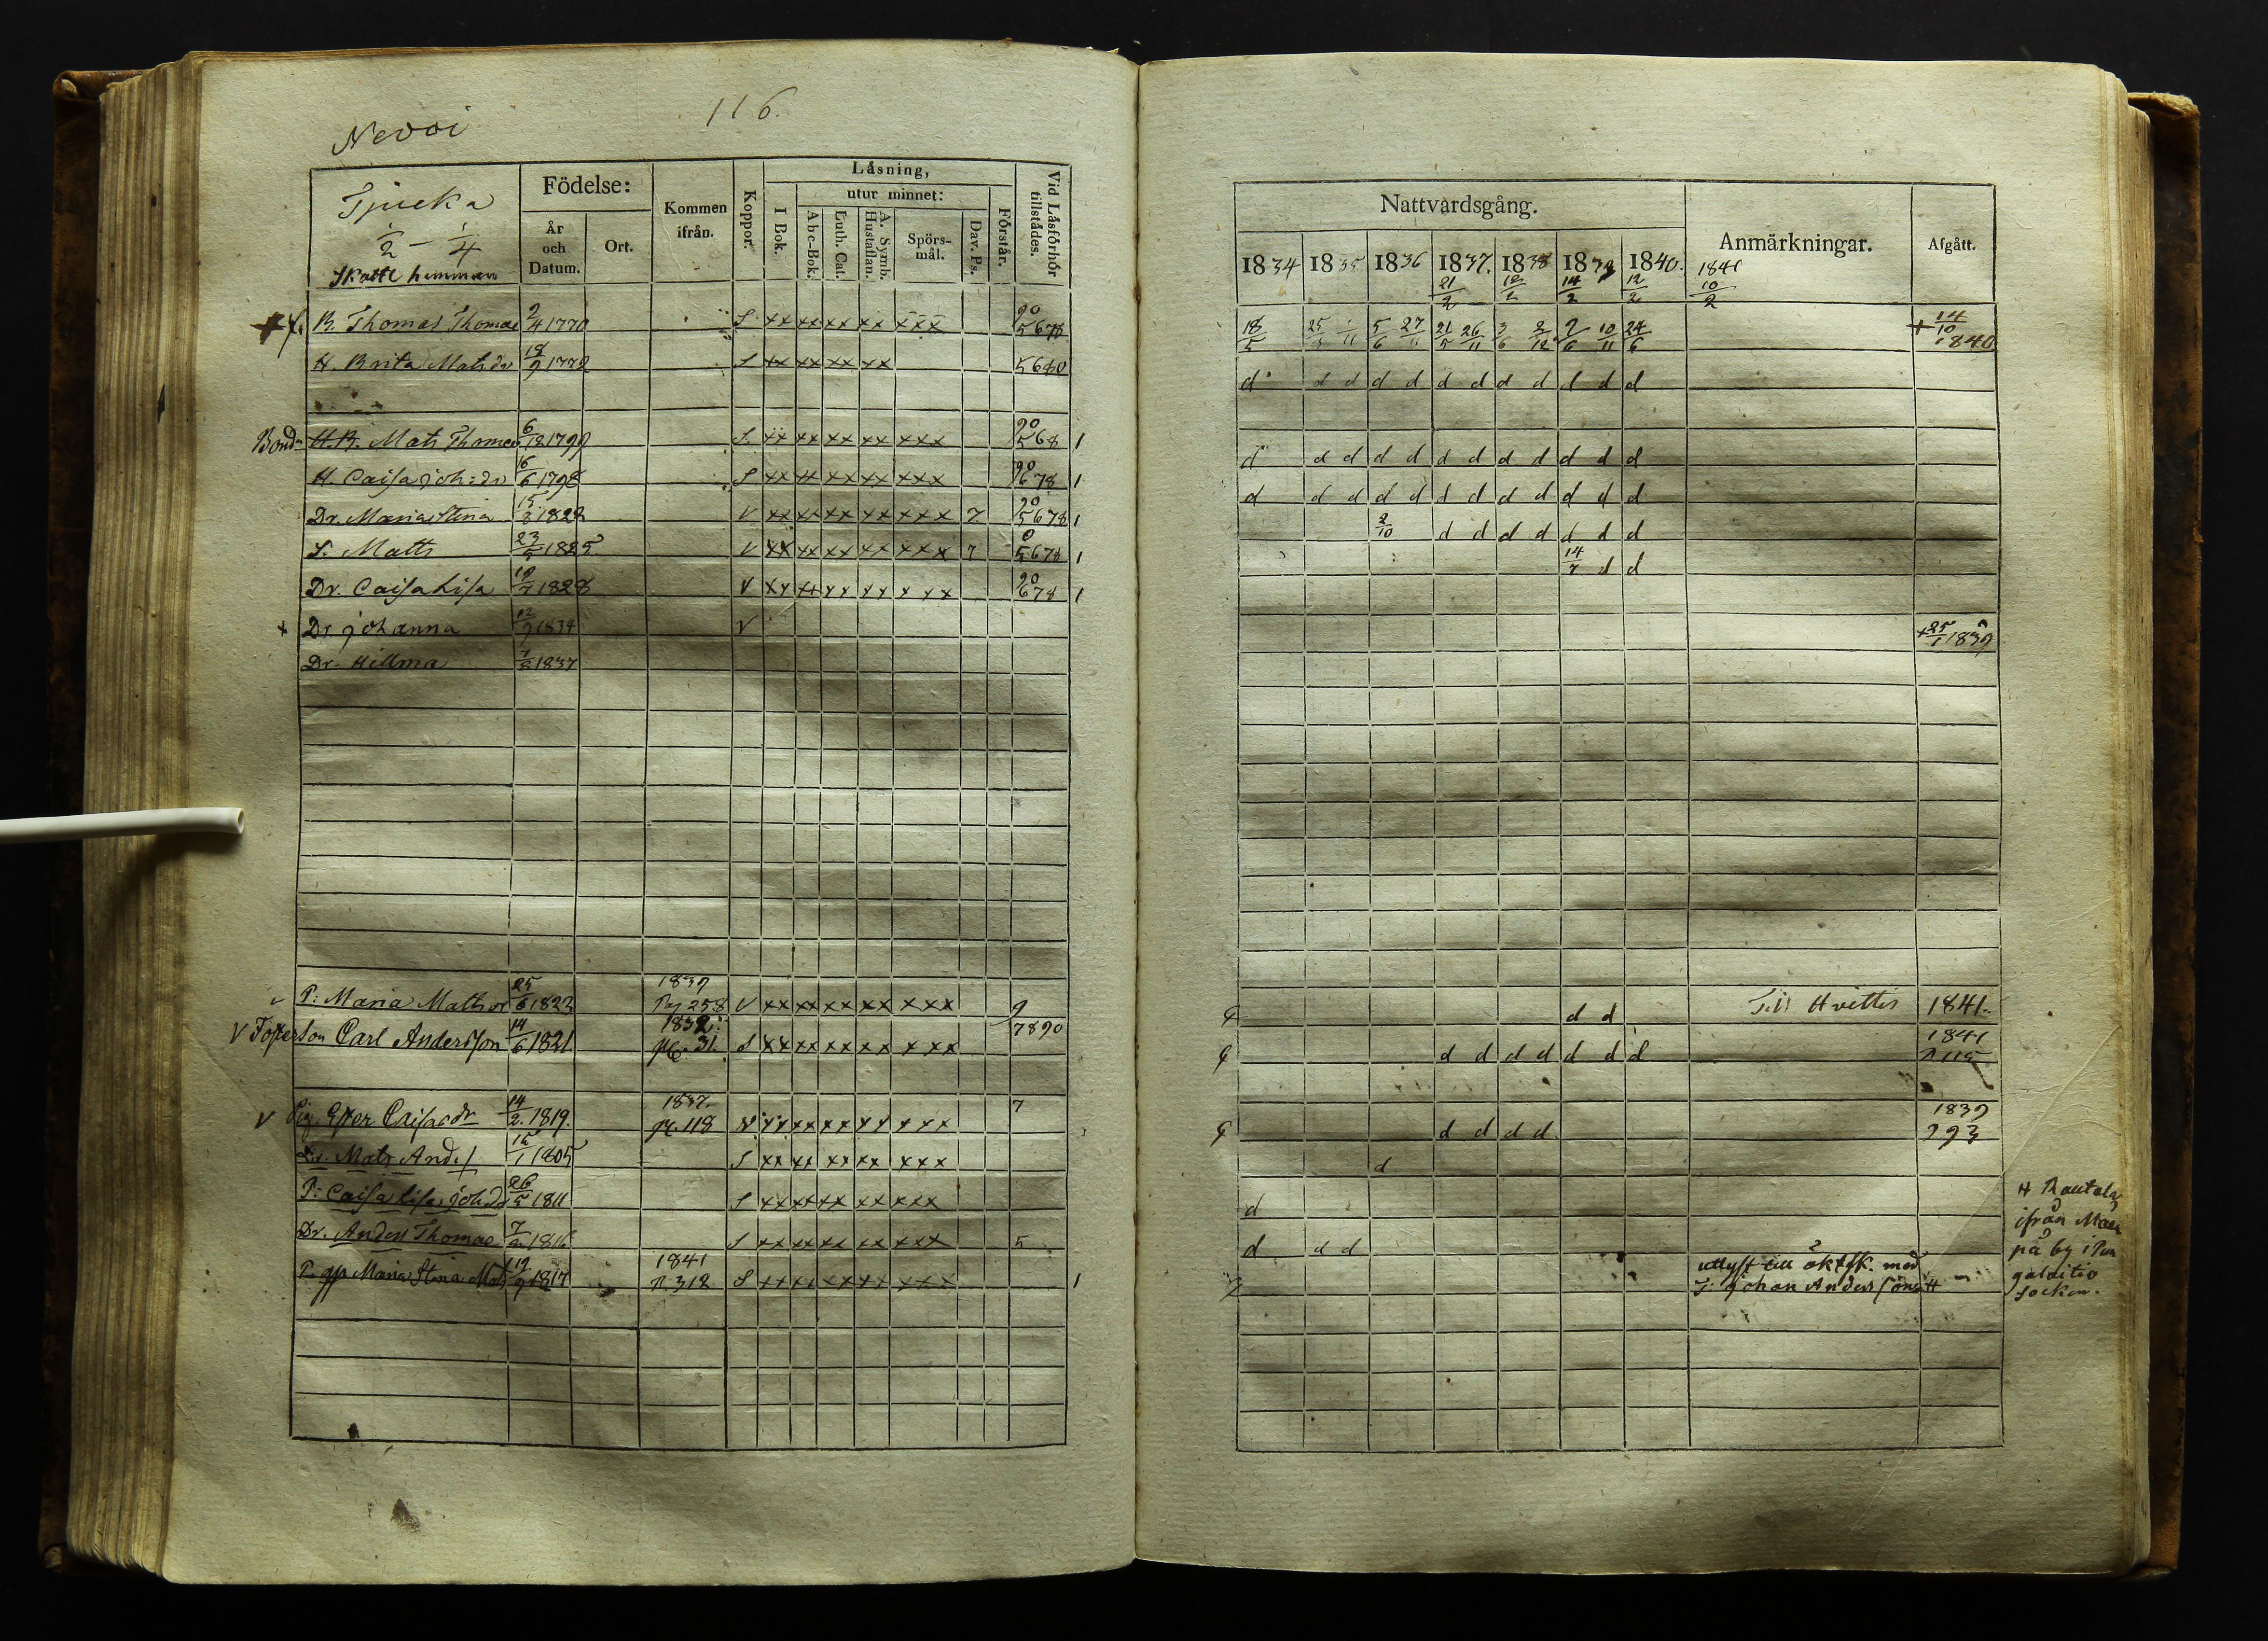 116.
Nevoi
Tjucka
1/2 – 1/4
Skatte hemman
Födelse:
År och Datum.
Ort.
Kommen ifrån.
Koppor.
Läsning,
I Bok.
utur minnet:
Abc-Bok.
Luth. Cat.
A. Symb. Hustaflan.
Spörsmål.
Dav. Ps.
Förstår.
Vid Läsförhör tillstädes.
B. Thomas Thomae 2/4 1770 S xx xx xx xx xxx 90 5678
H. Brita Matsdr 18/9 1772 S xx xx xx xx 5680
Bond H.B. Mats Thomae 6/12 1799 S xx xx xx xx xxx 90 568 1
H. Caisa joh:dr 16/6 1798 S xx xx xx xx xxx 90 678 1
Dr. Maria Stina 15/8 1822 V xx xx xx xx xxx 7 90 5678 1
S. Matts 23/5 1825 V xx xx xx xx xxx 7 0 5678 1
Dr. Caisa Lisa 19/7 1828 V xx xx xx xx xxx 90 678 1
x Dr johanna 12/9 1834 V
Dr. Hillma 7/8 1837
P: Maria Mathsdr 25/6 1822 1839 Pag 258 V xx xx xx xx xxx 9
V Fosterson Carl Andersson 14/6 1821 31. S xx xx xx xx xxx 7890
V Pig. Ester Caisasdr 14/2 1819. 1837. p. 118 V xx xx xx xx xxx 7
Mats And. 1805 S xx xx xx xx xxx
P: Caisa Lisa joh.dr 26/5 1811 S xx xx xx xx xxx
Dr. Anders Thomae 7/2 1816 S xx xx xx xx xxx 5
P. Maria Stina Mats 1817 1841 p. 312 S xx xx xx xx xxx 1
Nattvardsgång.
Anmärkningar.
Afgått.
1834 1835 1836 1837. 1838 1839 1840. 1841
21/2 12/2 14/2 12/2 10/2
18/5 25/5 11 5/6 27/11 21/5 26/11 3/6 2/12 2/6 10/11 24/6 + 14/10 1840
d d d d d d d d d d d d
d d d d d d d d d d d
d d d d d d d d d d d
2/10 d d d d d d d
14/7 d d
+ 25/1 1839
d d Till Hvittis 1841.
d d d d d d d 1841 p 115
d d d d 1839 p 93
d
d
d d d
utlyst till äktsk. med
S: johan Andersson #
# Rautala
ifrån Maan
på by i Pun
galaitio
Socken.